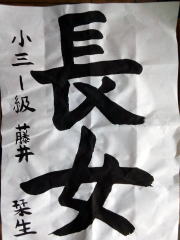 長女
小三 一級 藤井 栞生